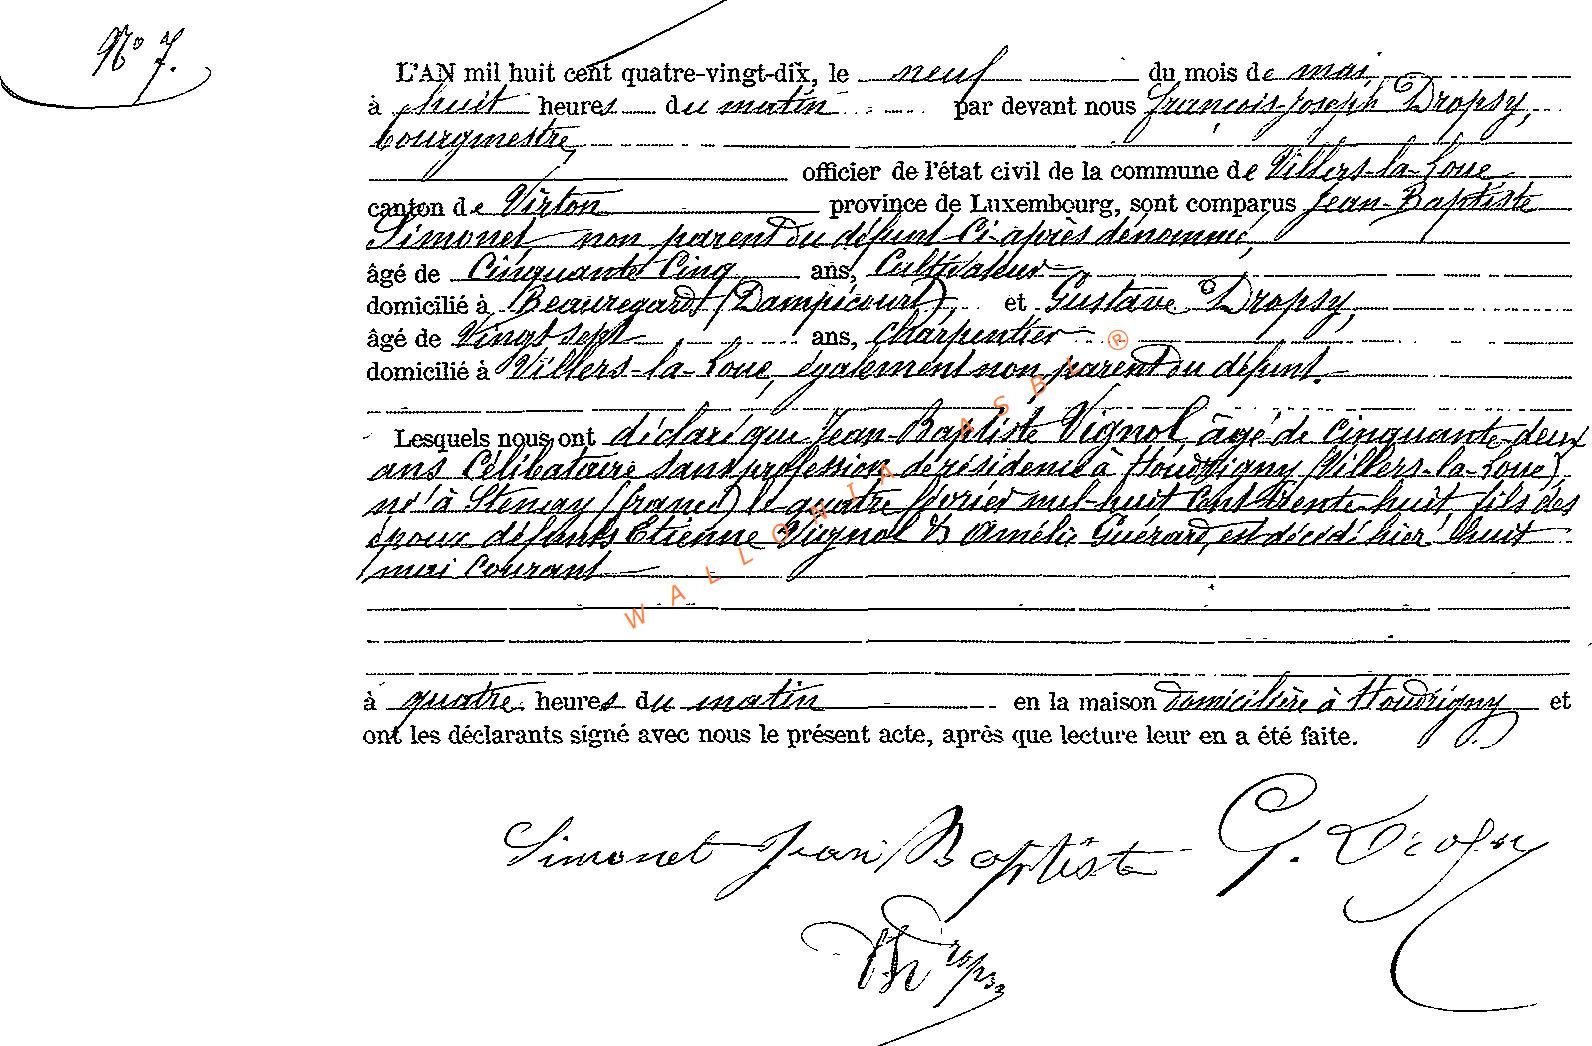 N° 7.
L'AN mil huit cent quatre-vingt-dix, le neuf du mois de mai,
à huit heures du matin par devant nous françois-joseph Dropsy,
bourgmestre,
officier de l'état civil de la commune de Villers-la-Loue
canton de Virton province de Luxembourg, sont comparus Jean-Baptiste
Simonet, non parent du défunt ci-après dénommé,
âgé de Cinquante Cinq ans, Cultivateur
domicilié à Beauregard (Dampicourt), et Gustave Dropsy,
âgé de Vingt sept ans, charpentier
domicilié à Villers-la-Loue, également non parent du défunt.
Lesquels nous ont déclaré que Jean-Baptiste Vignol, âgé de cinquante-deux
ans Célibataire sans profession, de résidence à Houdrigny (Villers-la-Loue),
né à Stenay (france) le quatre février mil-huit Cent trente-huit, fils des
époux défunts Etienne Vignol & Amélie Guérard, est décédé hier huit
mai Courant
à quatre heures du matin en la maison domicilière à Houdrigny et
ont les déclarants signé avec nous le présent acte, après que lecture leur en a été faite.
Simonet Jean Baptiste G. Dropsy
Dropsy
WALLONIA ASBL ®